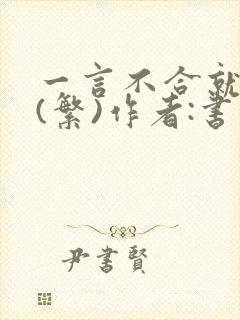 一言不合就
(繁)作者:書
尹書賢